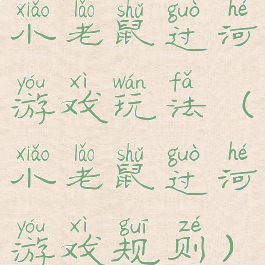 xiǎo lǎo shǔ guò hé
小老鼠过河
yóu xì wán fǎ
游戏玩法（
xiǎo lǎo shǔ guò hé
小老鼠过河
yóu xì guī zé
游戏规则）